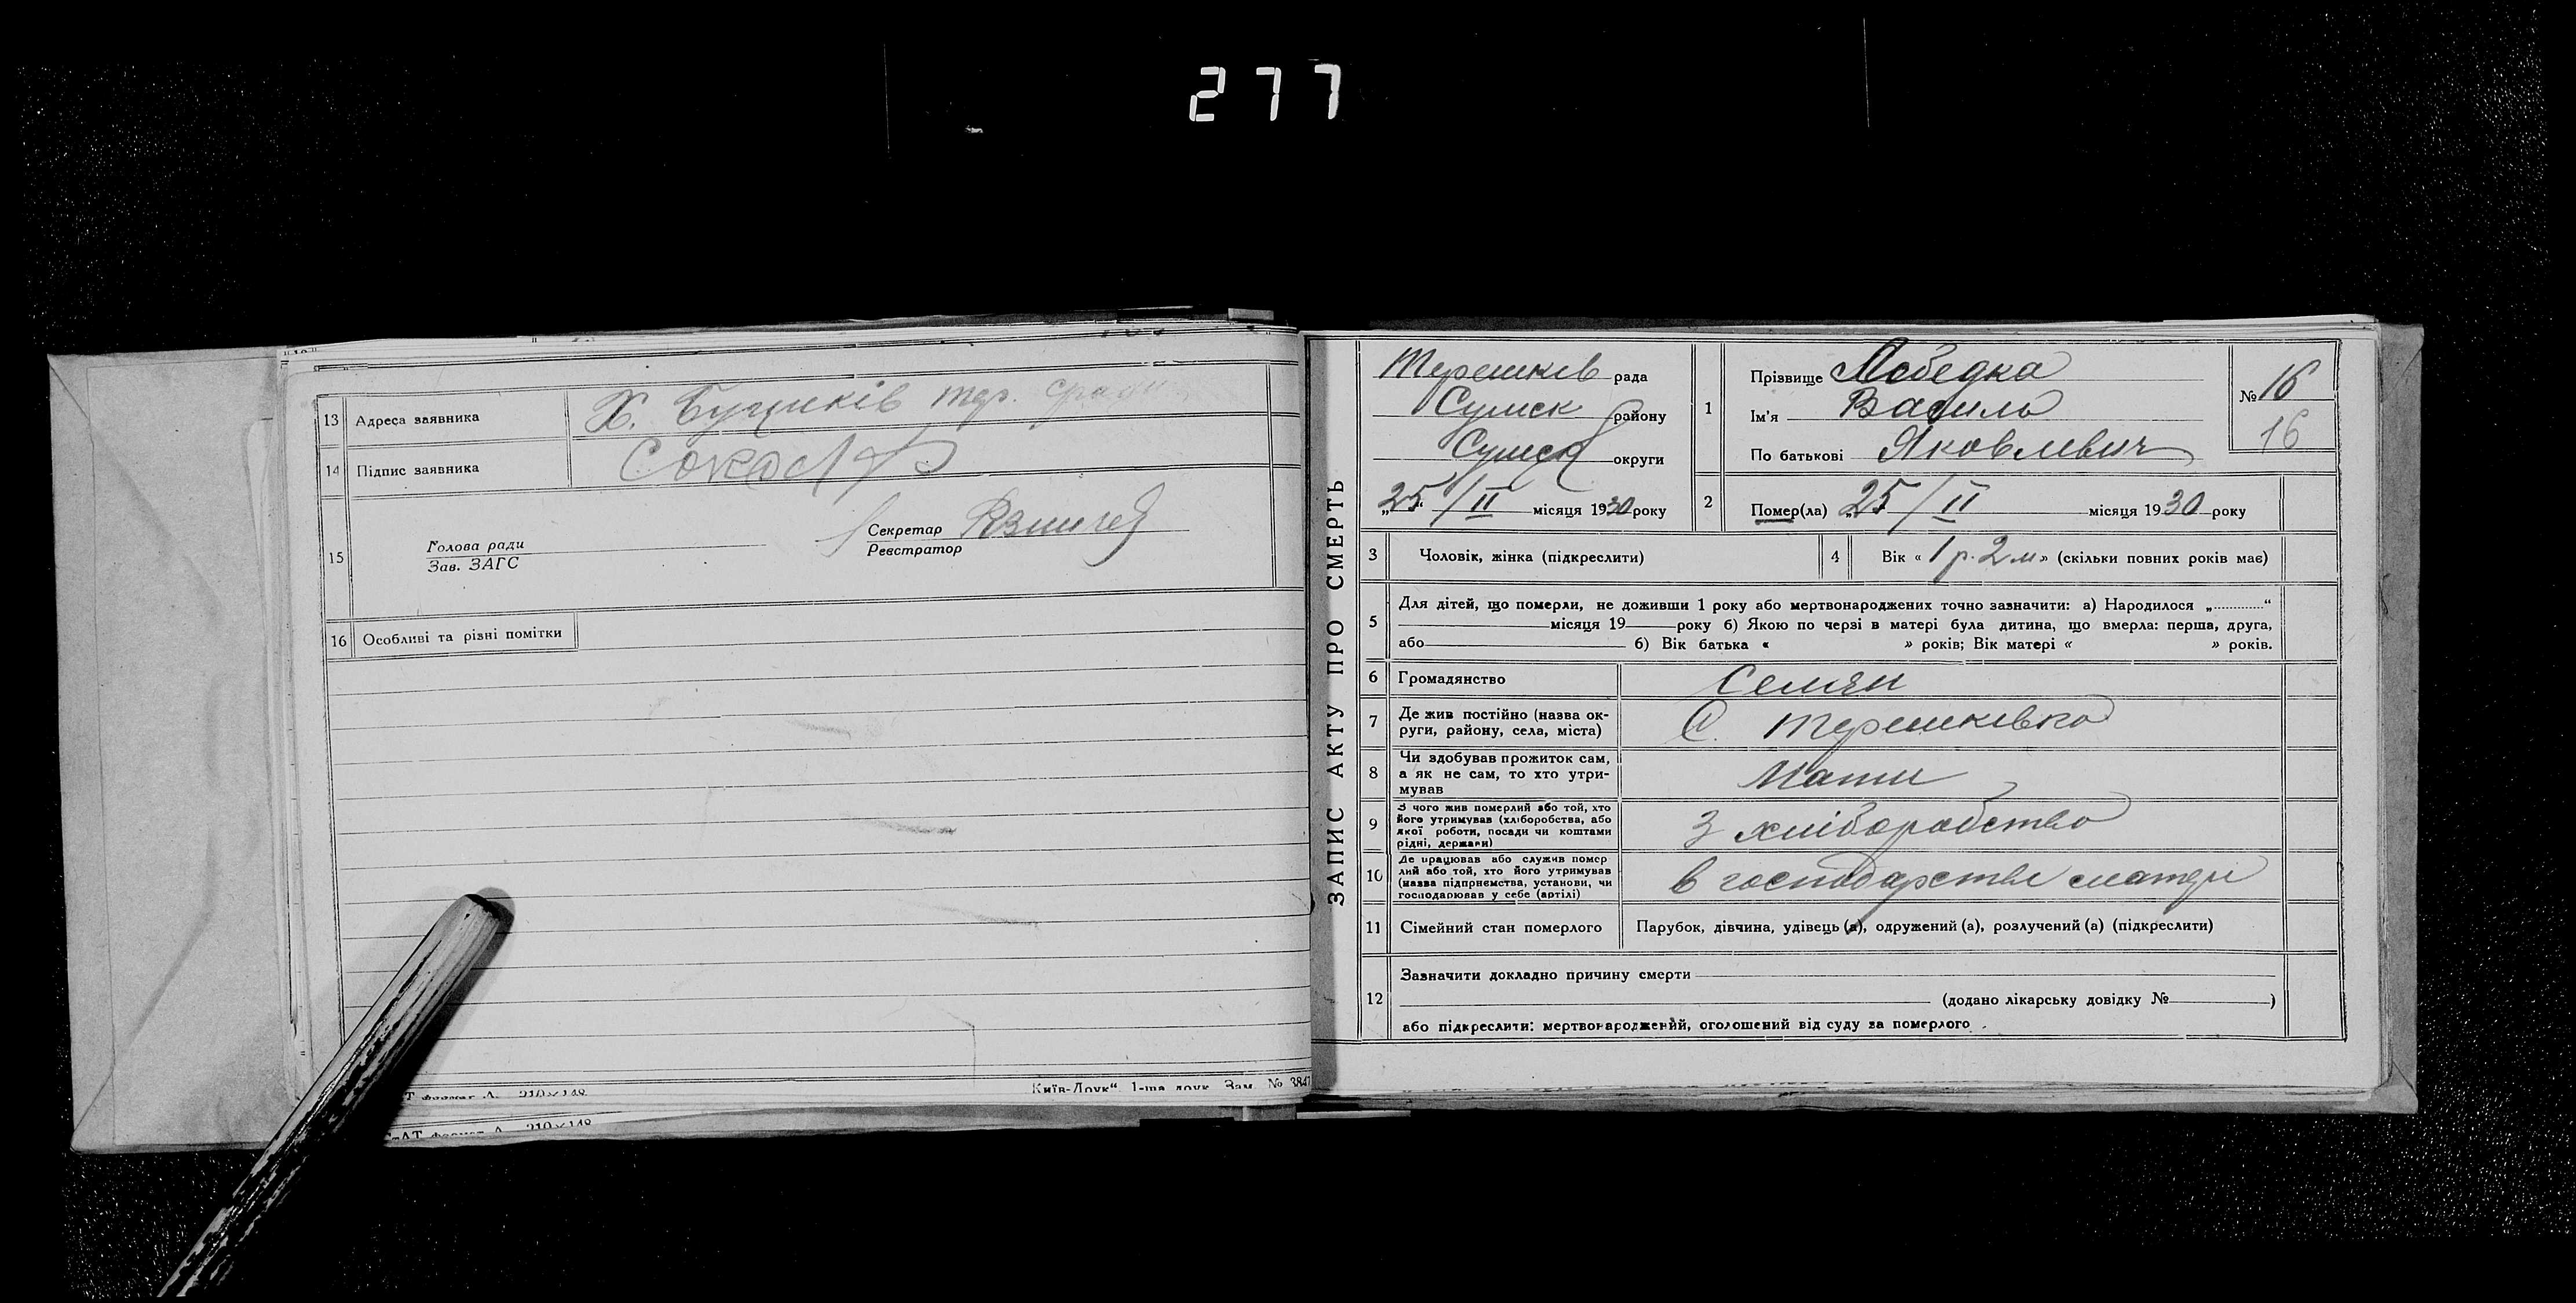 277
13 Адреса заявника Х. тер.
14 Підпис заявника
15 Голова ради
Зав. ЗАГС
Секретар
Реєстратор
16 Особливі та різні помітки
Київ-Друк“ 1-ша друк. Зам. № 3847
ЗАПИС АКТУ ПРО СМЕРТЬ
Терешків рада
Сумск району
Сумск округи
„25“ / II місяця 1930 року
1 Прізвище Лебедка
Ім'я Василь
По батькові Яковлевич
№ 16
16
2 Помер(ла) „25 / II місяця 1930 року
3 Чоловік, жінка (підкреслити)
4 Вік « 1 р. 2 м » (скільки повних років має)
5 Для дітей, що померли, не доживши 1 року або мертвонароджених точно зазначити: а) Народилося „............“
місяця 19 року б) Якою по черзі в матері була дитина, що вмерла: перша, друга,
або б) Вік батька « » років; Вік матері « » років.
6 Громадянство Селян
7 Де жив постійно (назва ок-
руги, району, села, міста) С. Терешківка
8 Чи здобував прожиток сам,
а як не сам, то хто утри-
мував Мати
9 З чого жив померлий або той, хто
його утримував (хліборобства, або
якої роботи, посади чи коштами
рідні, держави) З хліборобства
10 Де працював або служив помер
лий або той, хто його утримував
(назва підприємства, установи, чи
господарював у себе (артілі) в господарстві матери
11 Сімейний стан померлого Парубок, дівчина, удівець (а), одружений (а), розлучений (а) (підкреслити)
12 Зазначити докладно причину смерти
(додано лікарську довідку № )
або підкреслити: мертвонароджений, оголошений від суду за померлого